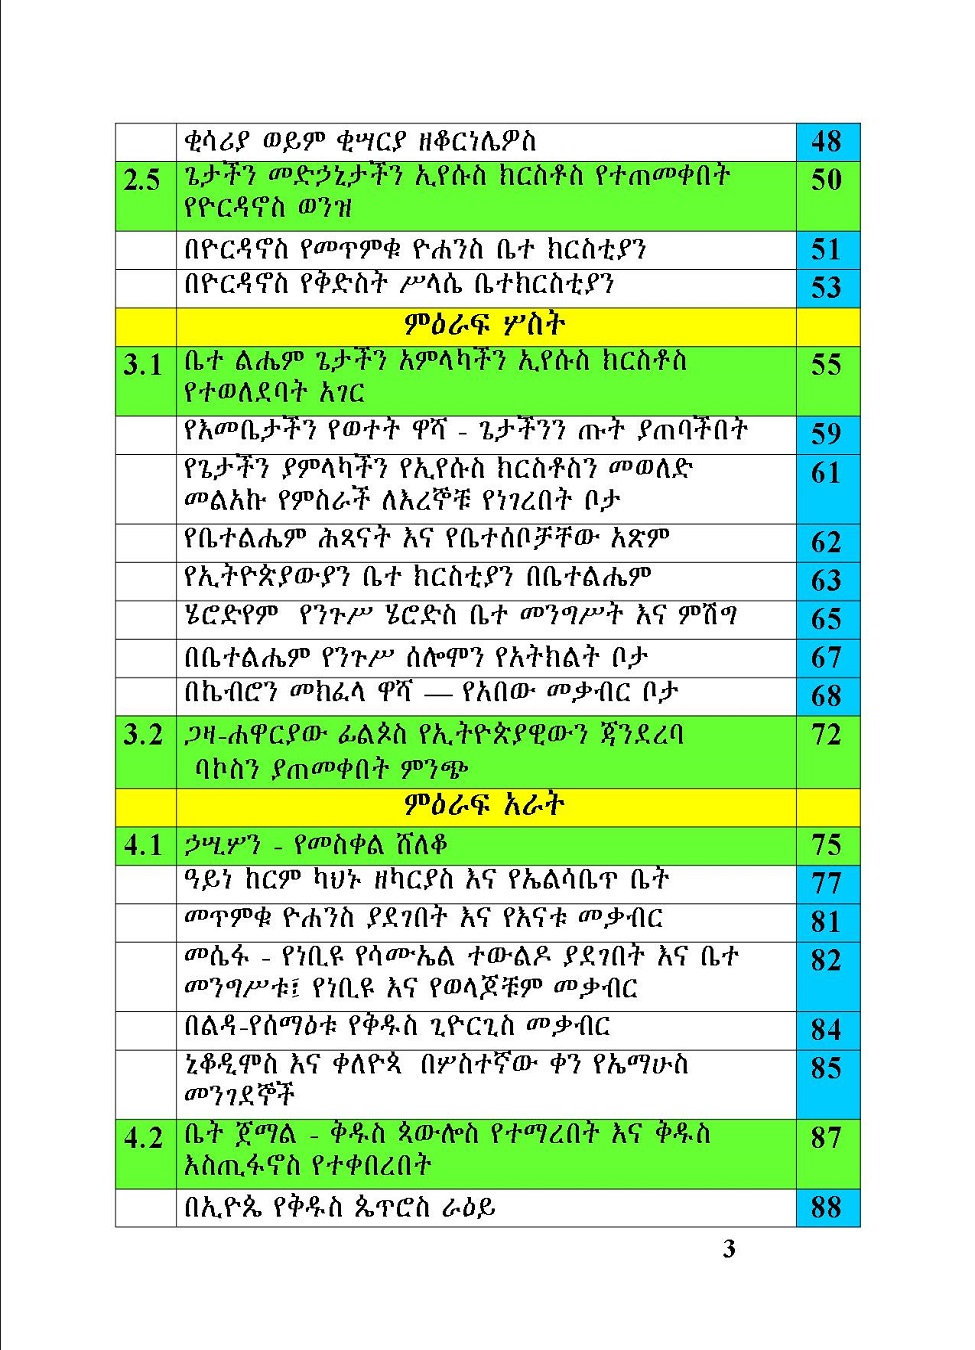 ቂሳሪያ ወይም ቂሣርያ ዘቆርነሌዎስ 48
2.5 ጌታችን መድኃኒታችን ኢየሱስ ክርስቶስ የተጠመቀበት 50
የዮርዳኖስ ወንዝ
በዮርዳኖስ የመጥምቁ ዮሐንስ ቤተ ክርስቲያን 51
በዮርዳኖስ የቅድስት ሥላሴ ቤተክርስቲያን 53
ምዕራፍ ሦስት
3.1 ቤተ ልሔም ጌታችን አምላካችን ኢየሱስ ክርስቶስ 55
የተወለደባት አገር
የእመቤታችን የወተት ዋሻ - ጌታችንን ጡት ያጠባችበት 59
የጌታችን ያምላካችን የኢየሱስ ክርስቶስን መወለድ 61
መልአኩ የምስራች ለእረኞቹ የነገረበት ቦታ
የቤተልሔም ሕጻናት እና የቤተሰቦቻቸው አጽም 62
የኢትዮጵያውያን ቤተ ክርስቲያን በቤተልሔም 63
ሄሮድየም የንጉሥ ሄሮድስ ቤተ መንግሥት እና ምሽግ 65
በቤተልሔም የንጉሥ ሰሎሞን የአትክልት ቦታ 67
በኬብሮን መክፈላ ዋሻ — የአበው መቃብር ቦታ 68
3.2 ጋዛ-ሐዋርያው ፊልጶስ የኢትዮጵያዊውን ጃንደረባ 72
ባኮስን ያጠመቀበት ምንጭ
ምዕራፍ አራት
4.1 ኃሢሦን - የመስቀል ሸለቆ 75
ዓይነ ከርም ካህኑ ዘካርያስ እና የኤልሳቤጥ ቤት 77
መጥምቁ ዮሐንስ ያደገበት እና የእናቱ መቃብር 81
መሴፋ - የነቢዩ የሳሙኤል ተውልዶ ያደገበት እና ቤተ 82
መንግሥቱ፤ የነቢዩ እና የወላጆቹም መቃብር
በልዳ-የሰማዕቱ የቅዱስ ጊዮርጊስ መቃብር 84
ኒቆዲሞስ እና ቀለዮጳ በሦስተኛው ቀን የኤማሁስ 85
መንገደኞች
4.2 ቤት ጀማል - ቅዱስ ጳውሎስ የተማረበት እና ቅዱስ 87
እስጢፋኖስ የተቀበረበት
በኢዮጴ የቅዱስ ጴጥሮስ ራዕይ 88
3